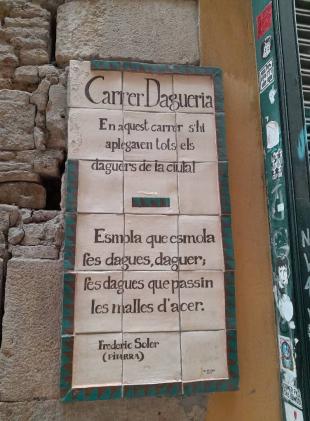 Carrer Dagueria
En aquest carrer s'hi
aplegaven tots els
daguers de la ciutat
Esmola que esmola
les dagues, daguer;
les dagues que passin
les malles d'acer.
Frederic Soler
(PITARRA)